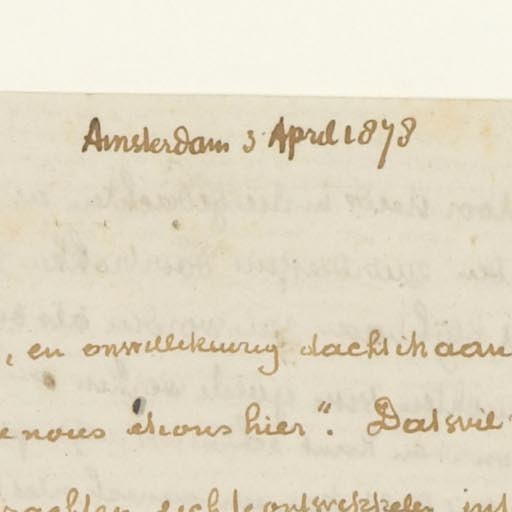 Amsterdam 3 April 1878
, en onwillekeurig dacht ik aan
nous étions hier". Dat wil
zich te ontwikkelen